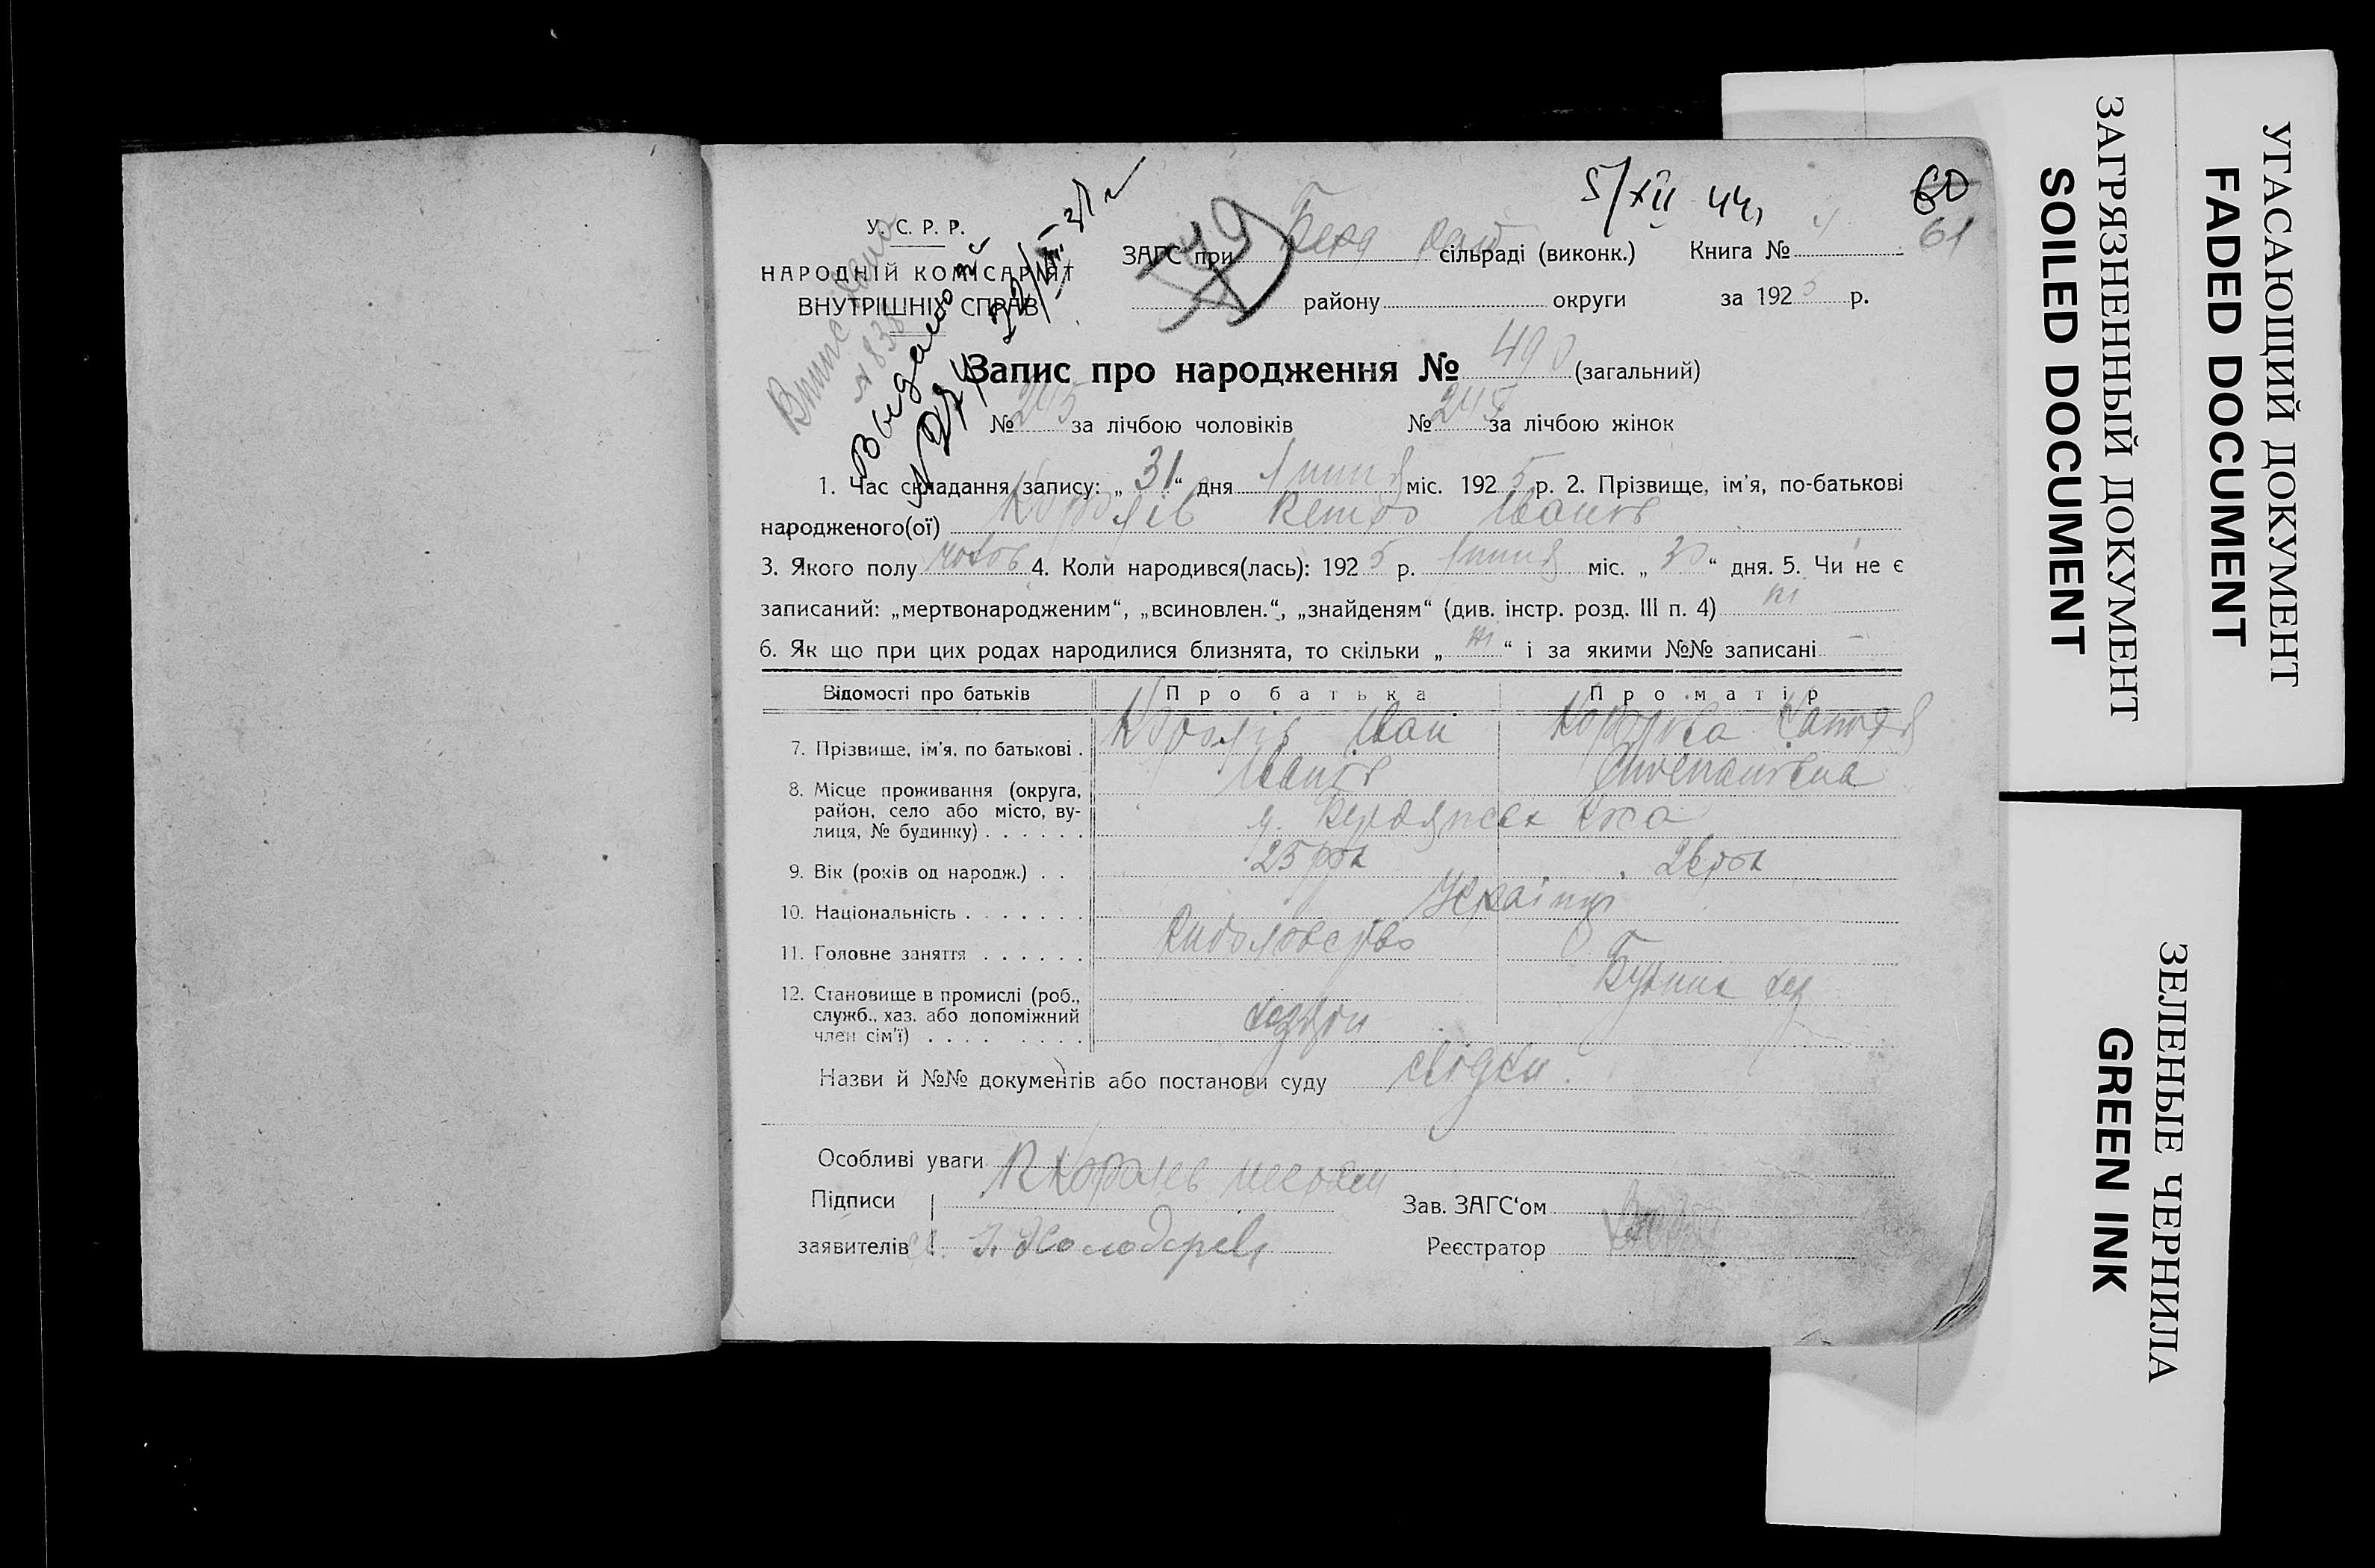 5/XII 44,
60
61
У. С. Р. Р.
НАРОДНІЙ КОМІСАРІЯТ
ВНУТРІШНІХ СПРАВ
ЗАГС при сільраді (виконк.) Книга № 4
району округи за 1925 р.
Запис про народження № 490 (загальний)
№ 245 за лічбою чоловіків № 245 за лічбою жінок
1. Час складання запису: „31“ дня липня міс. 1925 р. 2. Прізвище, ім'я, по-батькові
народженого(ої) Королів Петро Іванів
3. Якого полу чолов 4. Коли народився(лась): 1925 р. липня міс. „30“ дня. 5. Чи не є
записаний: „мертвонародженим“, „всиновлен.“, „знайденям“ (див. інстр. розд. III п. 4) ні
6. Як що при цих родах народилися близнята, то скільки „ні“ і за якими №№ записані –
Відомості про батьків Про батька Про матір
7. Прізвище, ім'я, по батькові . Королів Іван Королева
Іванів Степанівна
8. Місце проживання (округа,
район, село або місто, ву-
лиця, № будинку) . . . . . . м. Бердянськ Коса
9. Вік (років од народж.) . . 25 рок 26 рок
10. Національність . . . . . . . Українці
11. Головне заняття . . . . . . Риболовство
12. Становище в промислі (роб.,
служб., хаз. або допоміжний
член сім'ї) . . . . . . . .
Назви й №№ документів або постанови суду свідки.
Особливі уваги
Підписи
заявителів
Зав. ЗАГС‘ом
Реєстратор
УГАСАЮЩИЙ ДОКУМЕНТ
FADED DOCUMENT
ЗАГРЯЗНЕННЫЙ ДОКУМЕНТ
SOILED DOCUMENT
ЗЕЛЕНЫЕ ЧЕРНИЛА
GREEN INK